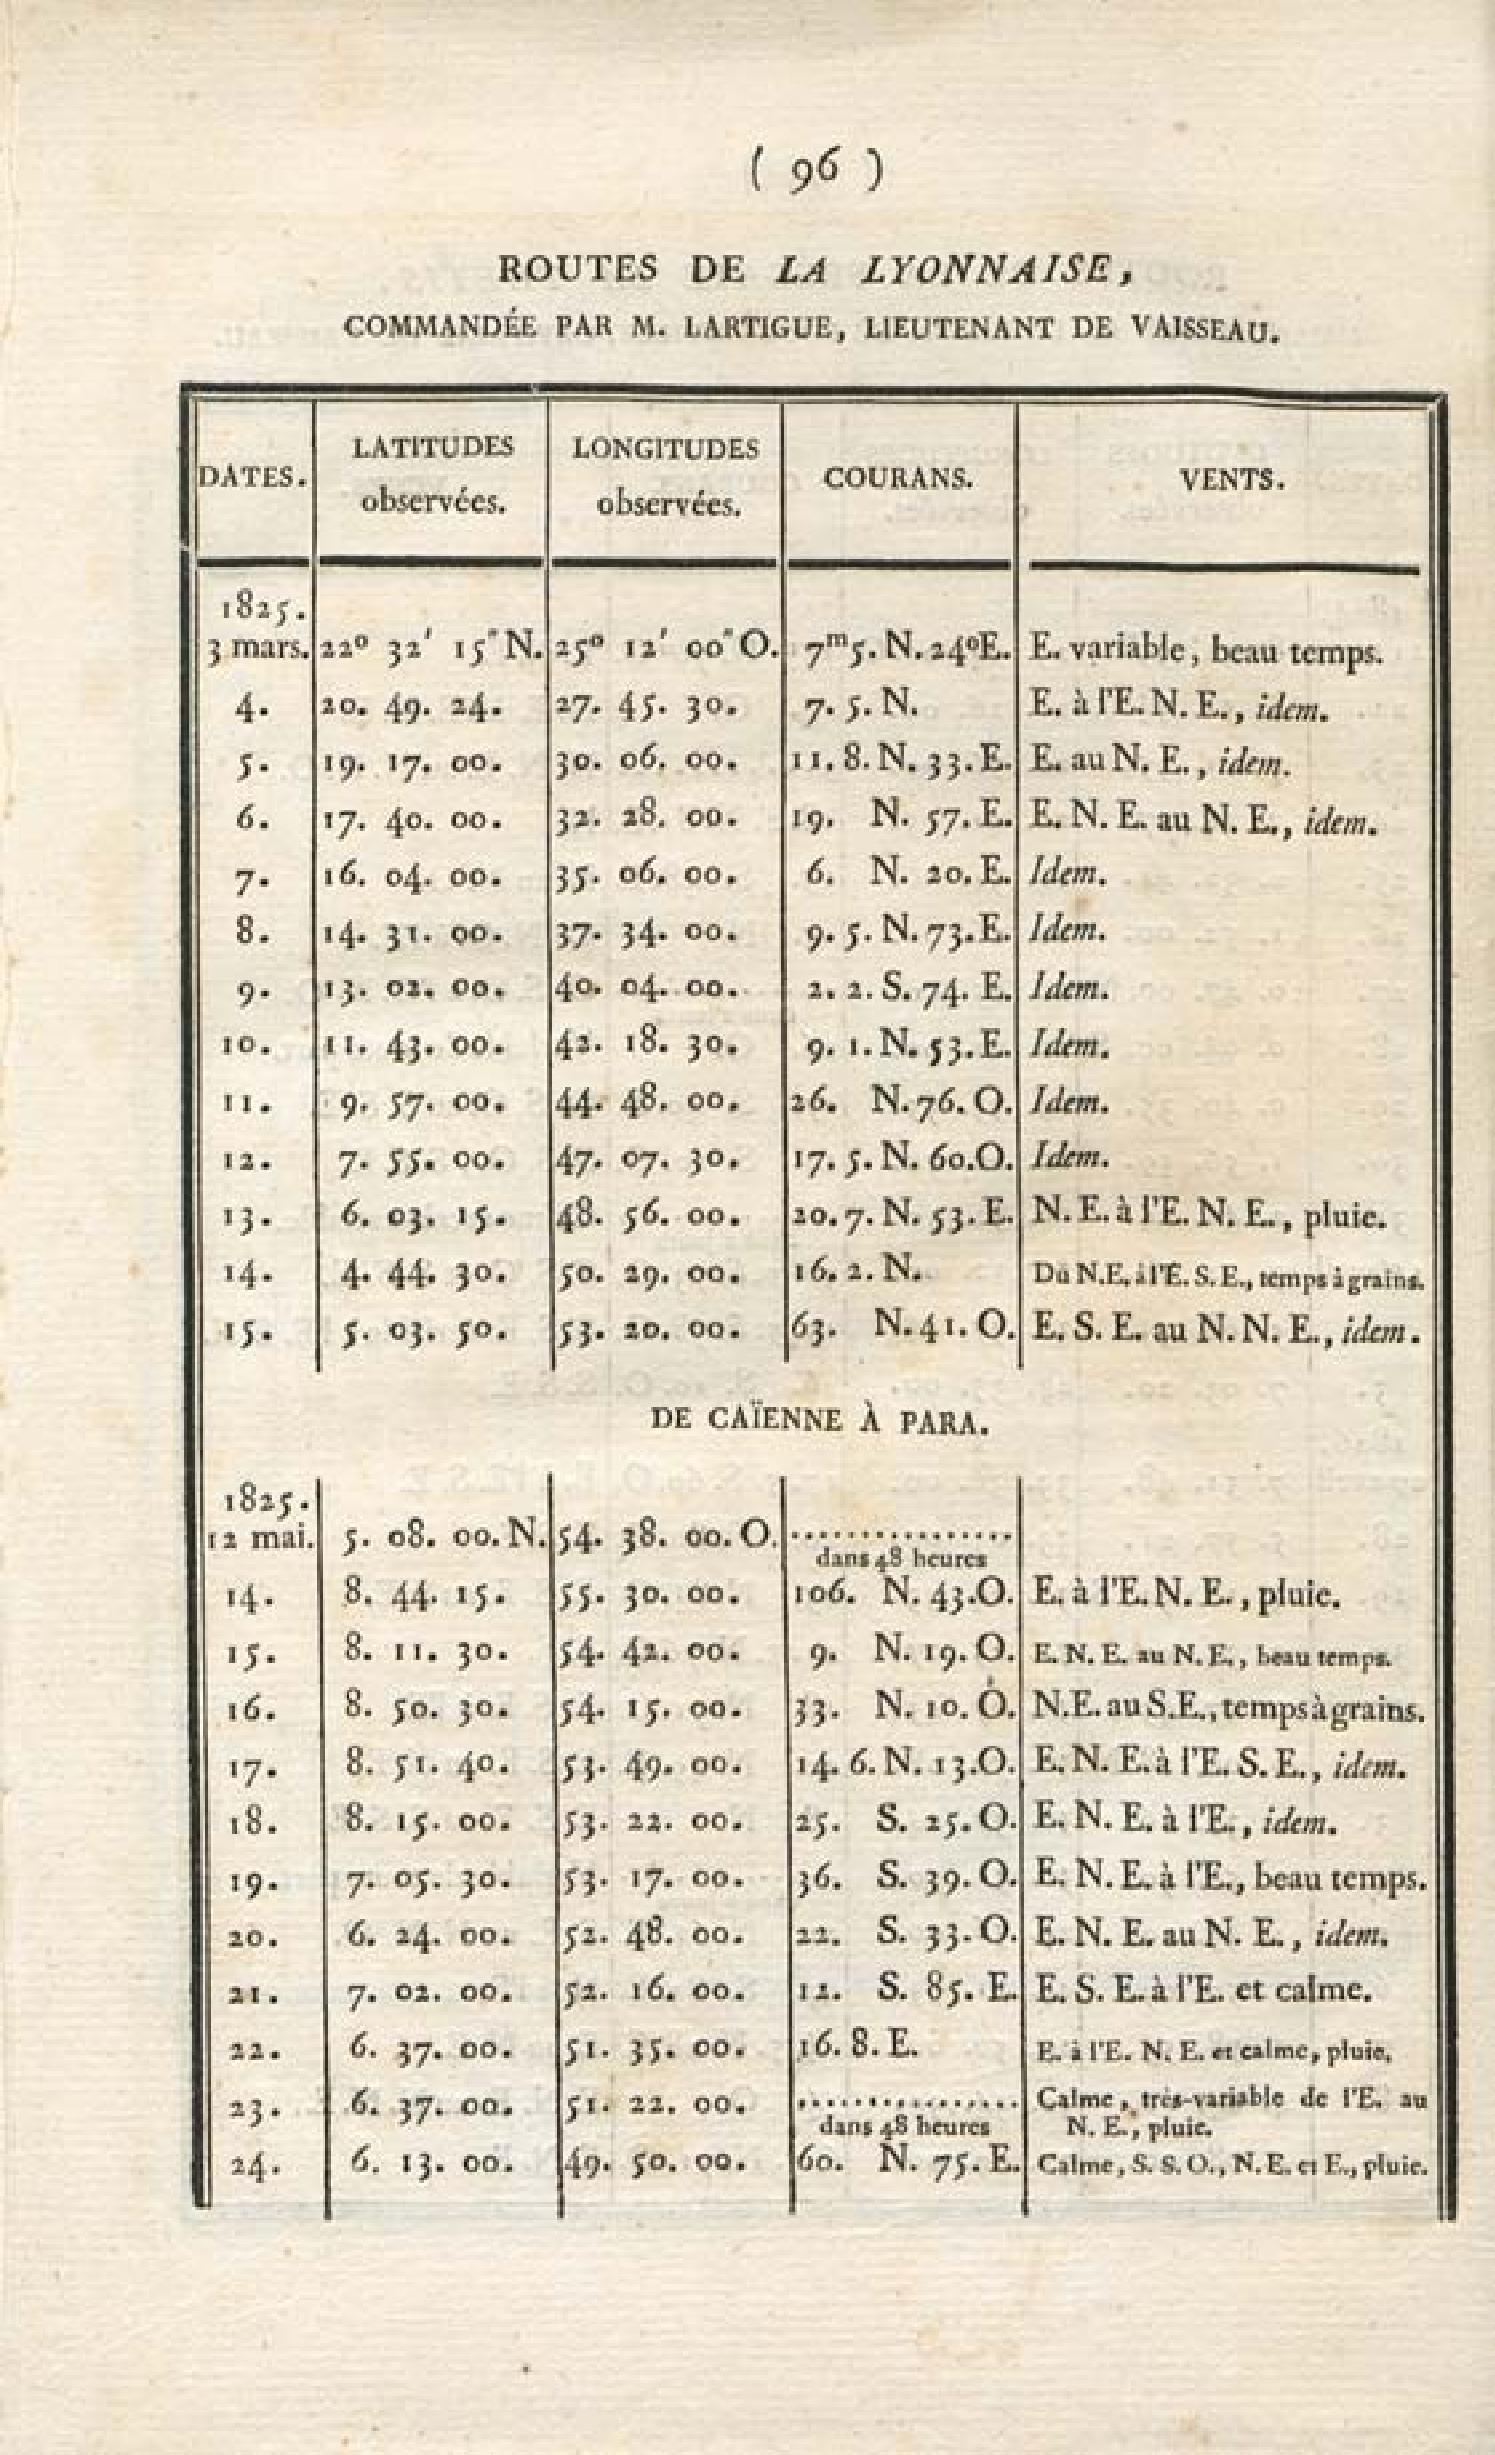 ( 96 )
ROUTES DE LA LYONNAISE,
COMMANDÉE PAR M. LARTIGUE, LIEUTENANT DE VAISSEAU.
DATES. LATITUDES observées. LONGITUDES observées. COURANS. VENTS.
1825.
3 mars. 22° 32' 15" N. 25° 12' 00" O. 7m 5. N. 24° E. E. variable, beau temps.
4. 20. 49. 24. 27. 45. 30. 7. 5. N. E. à l'E. N. E., idem.
5. 19. 17. 00. 30. 06. 00. 11. 8. N. 33. E. E. au N. E., idem.
6. 17. 40. 00. 32. 28. 00. 19. N. 57. E. E. N. E. au N. E., idem.
7. 16. 04. 00. 35. 06. 00. 6. N. 20. E. Idem.
8. 14. 31. 00. 37. 34. 00. 9. 5. N. 73. E. Idem.
9. 13. 02. 00. 40. 04. 00. 2. 2. S. 74. E. Idem.
10. 11. 43. 00. 42. 18. 30. 9. 1. N. 53. E. Idem.
11. 9. 57. 00. 44. 48. 00. 26. N. 76. O. Idem.
12. 7. 55. 00. 47. 07. 30. 17. 5. N. 60. O. Idem.
13. 6. 03. 15. 48. 56. 00. 20. 7. N. 53. E. N. E. à l'E. N. E., pluie.
14. 4. 44. 30. 50. 29. 00. 16. 2. N. Du N. E. à l'E. S. E., temps à grains.
15. 5. 03. 50. 53. 20. 00. 63. N. 41. O. E. S. E. au N. N. E., idem.
DE CAÏENNE À PARA.
1825.
12 mai. 5. 08. 00. N. 54. 38. 00. O. ................
dans 48 heures
14. 8. 44. 15. 55. 30. 00. 106. N. 43. O. E. à l'E. N. E., pluie.
15. 8. 11. 30. 54. 42. 00. 9. N. 19. O. E. N. E. au N. E., beau temps.
16. 8. 50. 30. 54. 15. 00. 33. N. 10. O. N. E. au S. E., temps à grains.
17. 8. 51. 40. 53. 49. 00. 14. 6. N. 13. O. E. N. E. à l'E. S. E., idem.
18. 8. 15. 00. 53. 22. 00. 25. S. 25. O. E. N. E. à l'E., idem.
19. 7. 05. 30. 53. 17. 00. 36. S. 39. O. E. N. E. à l'E., beau temps.
20. 6. 24. 00. 52. 48. 00. 22. S. 33. O. E. N. E. au N. E., idem.
21. 7. 02. 00. 52. 16. 00. 12. S. 85. E. E. S. E. à l'E. et calme.
22. 6. 37. 00. 51. 35. 00. 16. 8. E. E. à l'E. N. E. et calme, pluie.
23. 6. 37. 00. 51. 22. 00. ................ Calme, très-variable de l'E. au
dans 48 heures N. E., pluie.
24. 6. 13. 00. 49. 50. 00. 60. N. 75. E. Calme, S. S. O., N. E. et E., pluie.